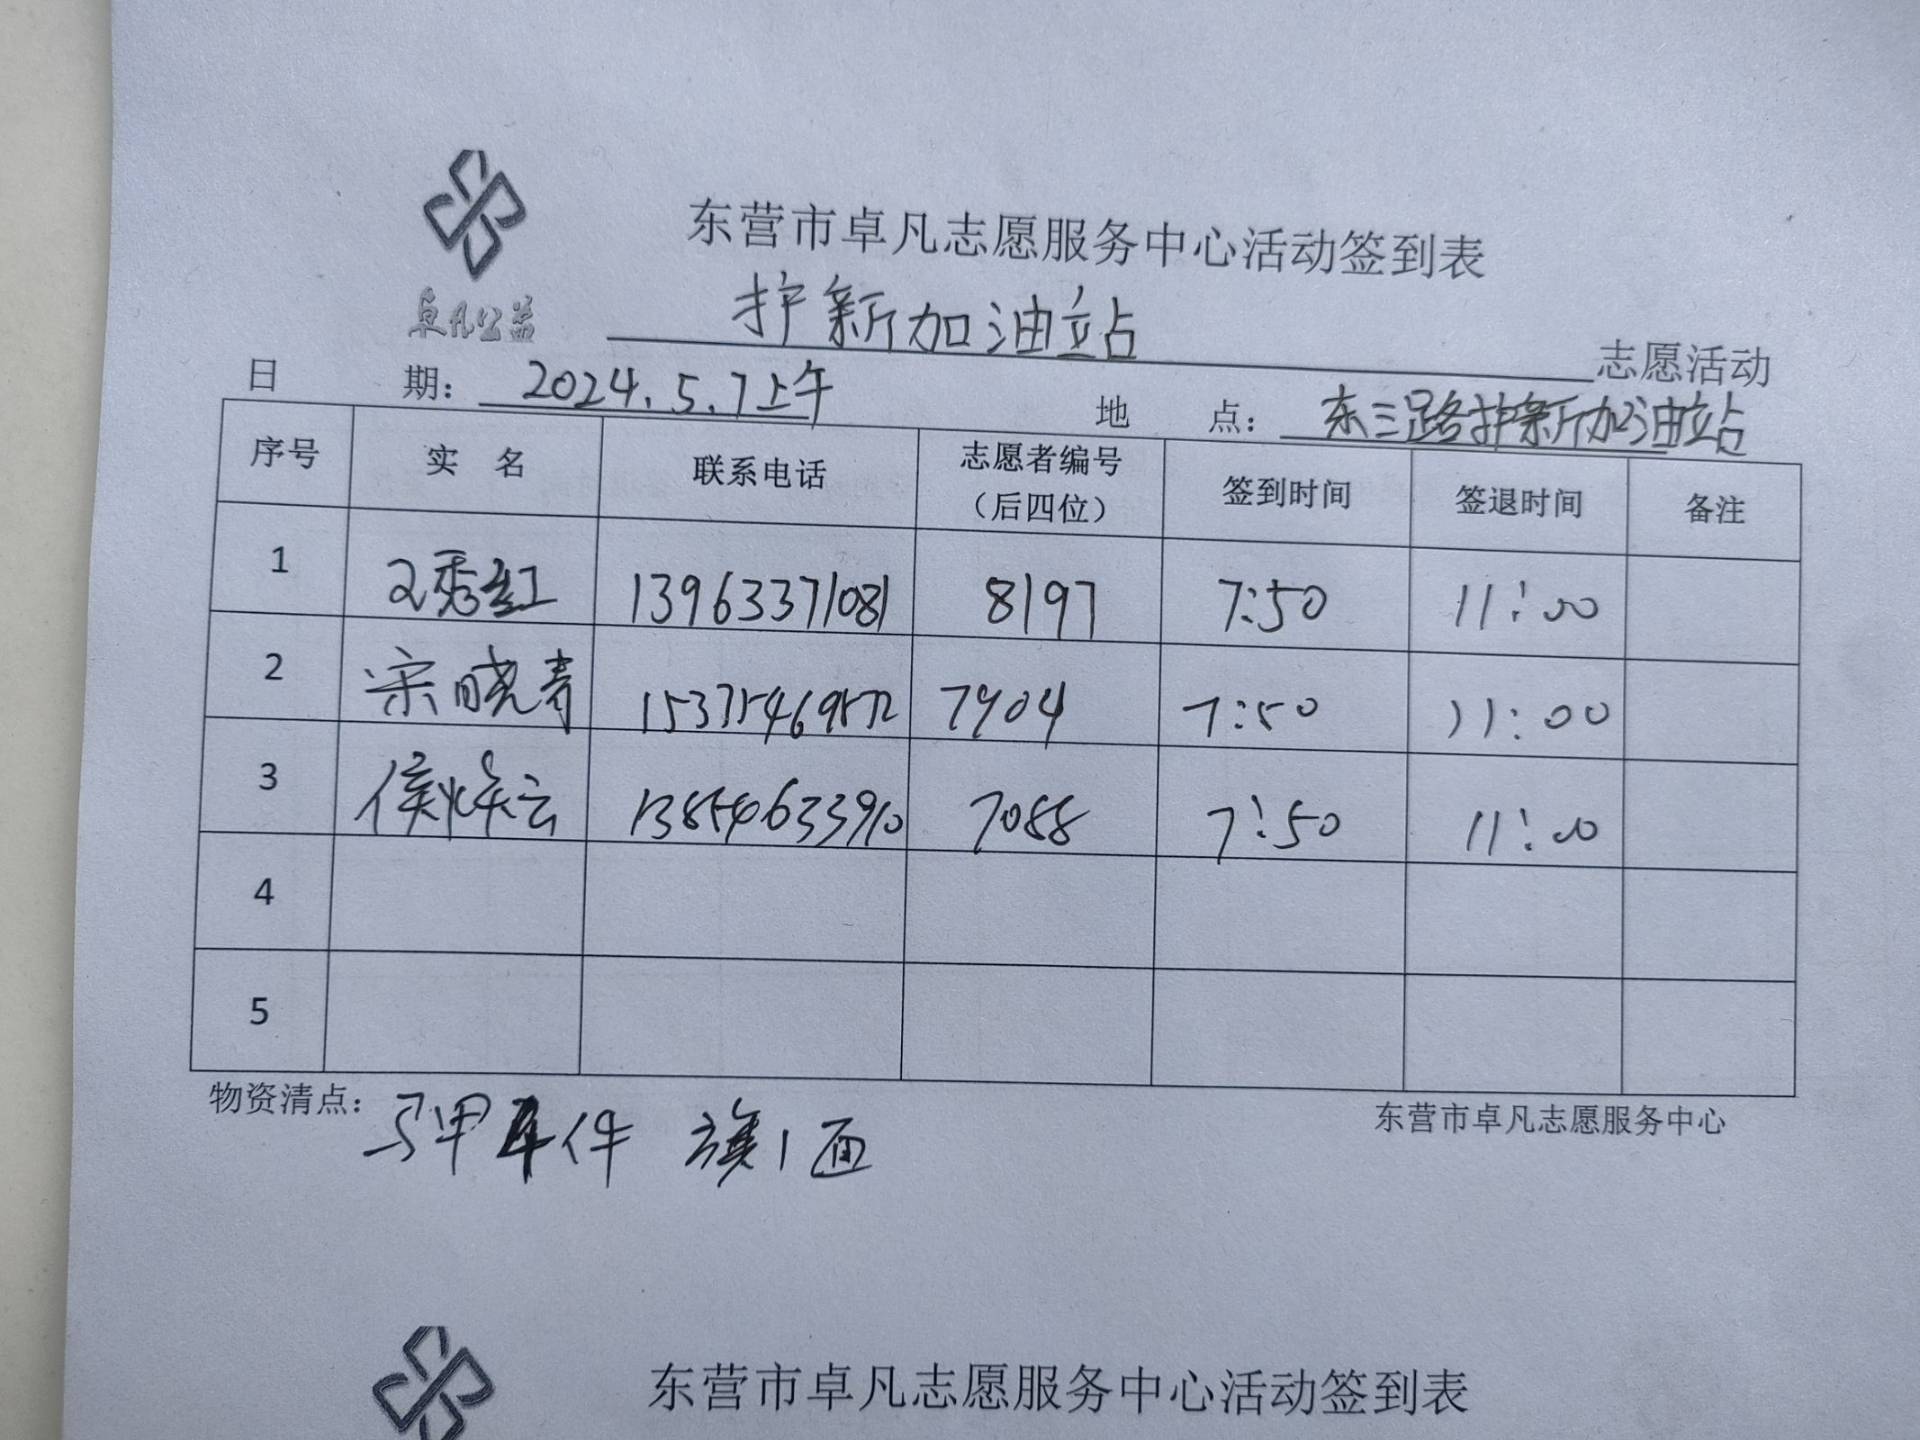 东营市卓凡志愿服务中心活动签到表
卓凡公益
护新加油站 志愿活动
日 期: 2024.5.7上午 地 点: 东三路护新加油站
序号 实 名 联系电话 志愿者编号（后四位） 签到时间 签退时间 备注
1 秀红 13963371081 8197 7:50 11:00
2 宋晓青 7904 7:50 11:00
3 侯焕云 13854633910 7088 7:50 11:00
4
5
物资清点: 马甲 件 旗1面
东营市卓凡志愿服务中心
东营市卓凡志愿服务中心活动签到表